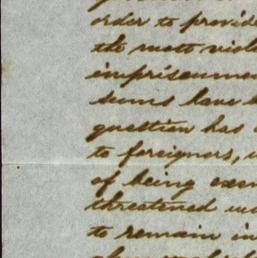 order to provide
the most viole
imprisonme
sums have b
question has
to foreigners,
of being exem
threatened
to remain in